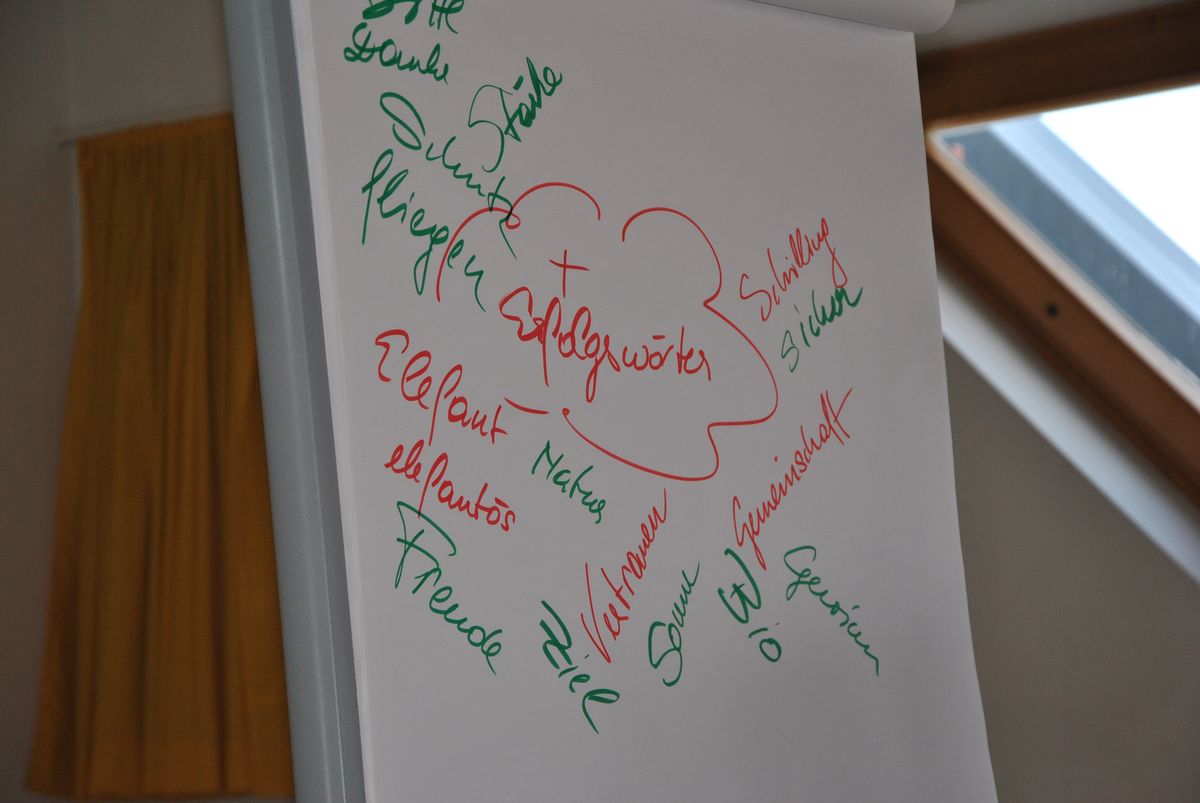 Bitte
Danke
Stärke
Schutz
fliegen
+
Erfolgswörter
Schilling
sicher
Elefant
elefantös
Natur
Gemeinschaft
Vertrauen
Freude
Ziel
Sonne